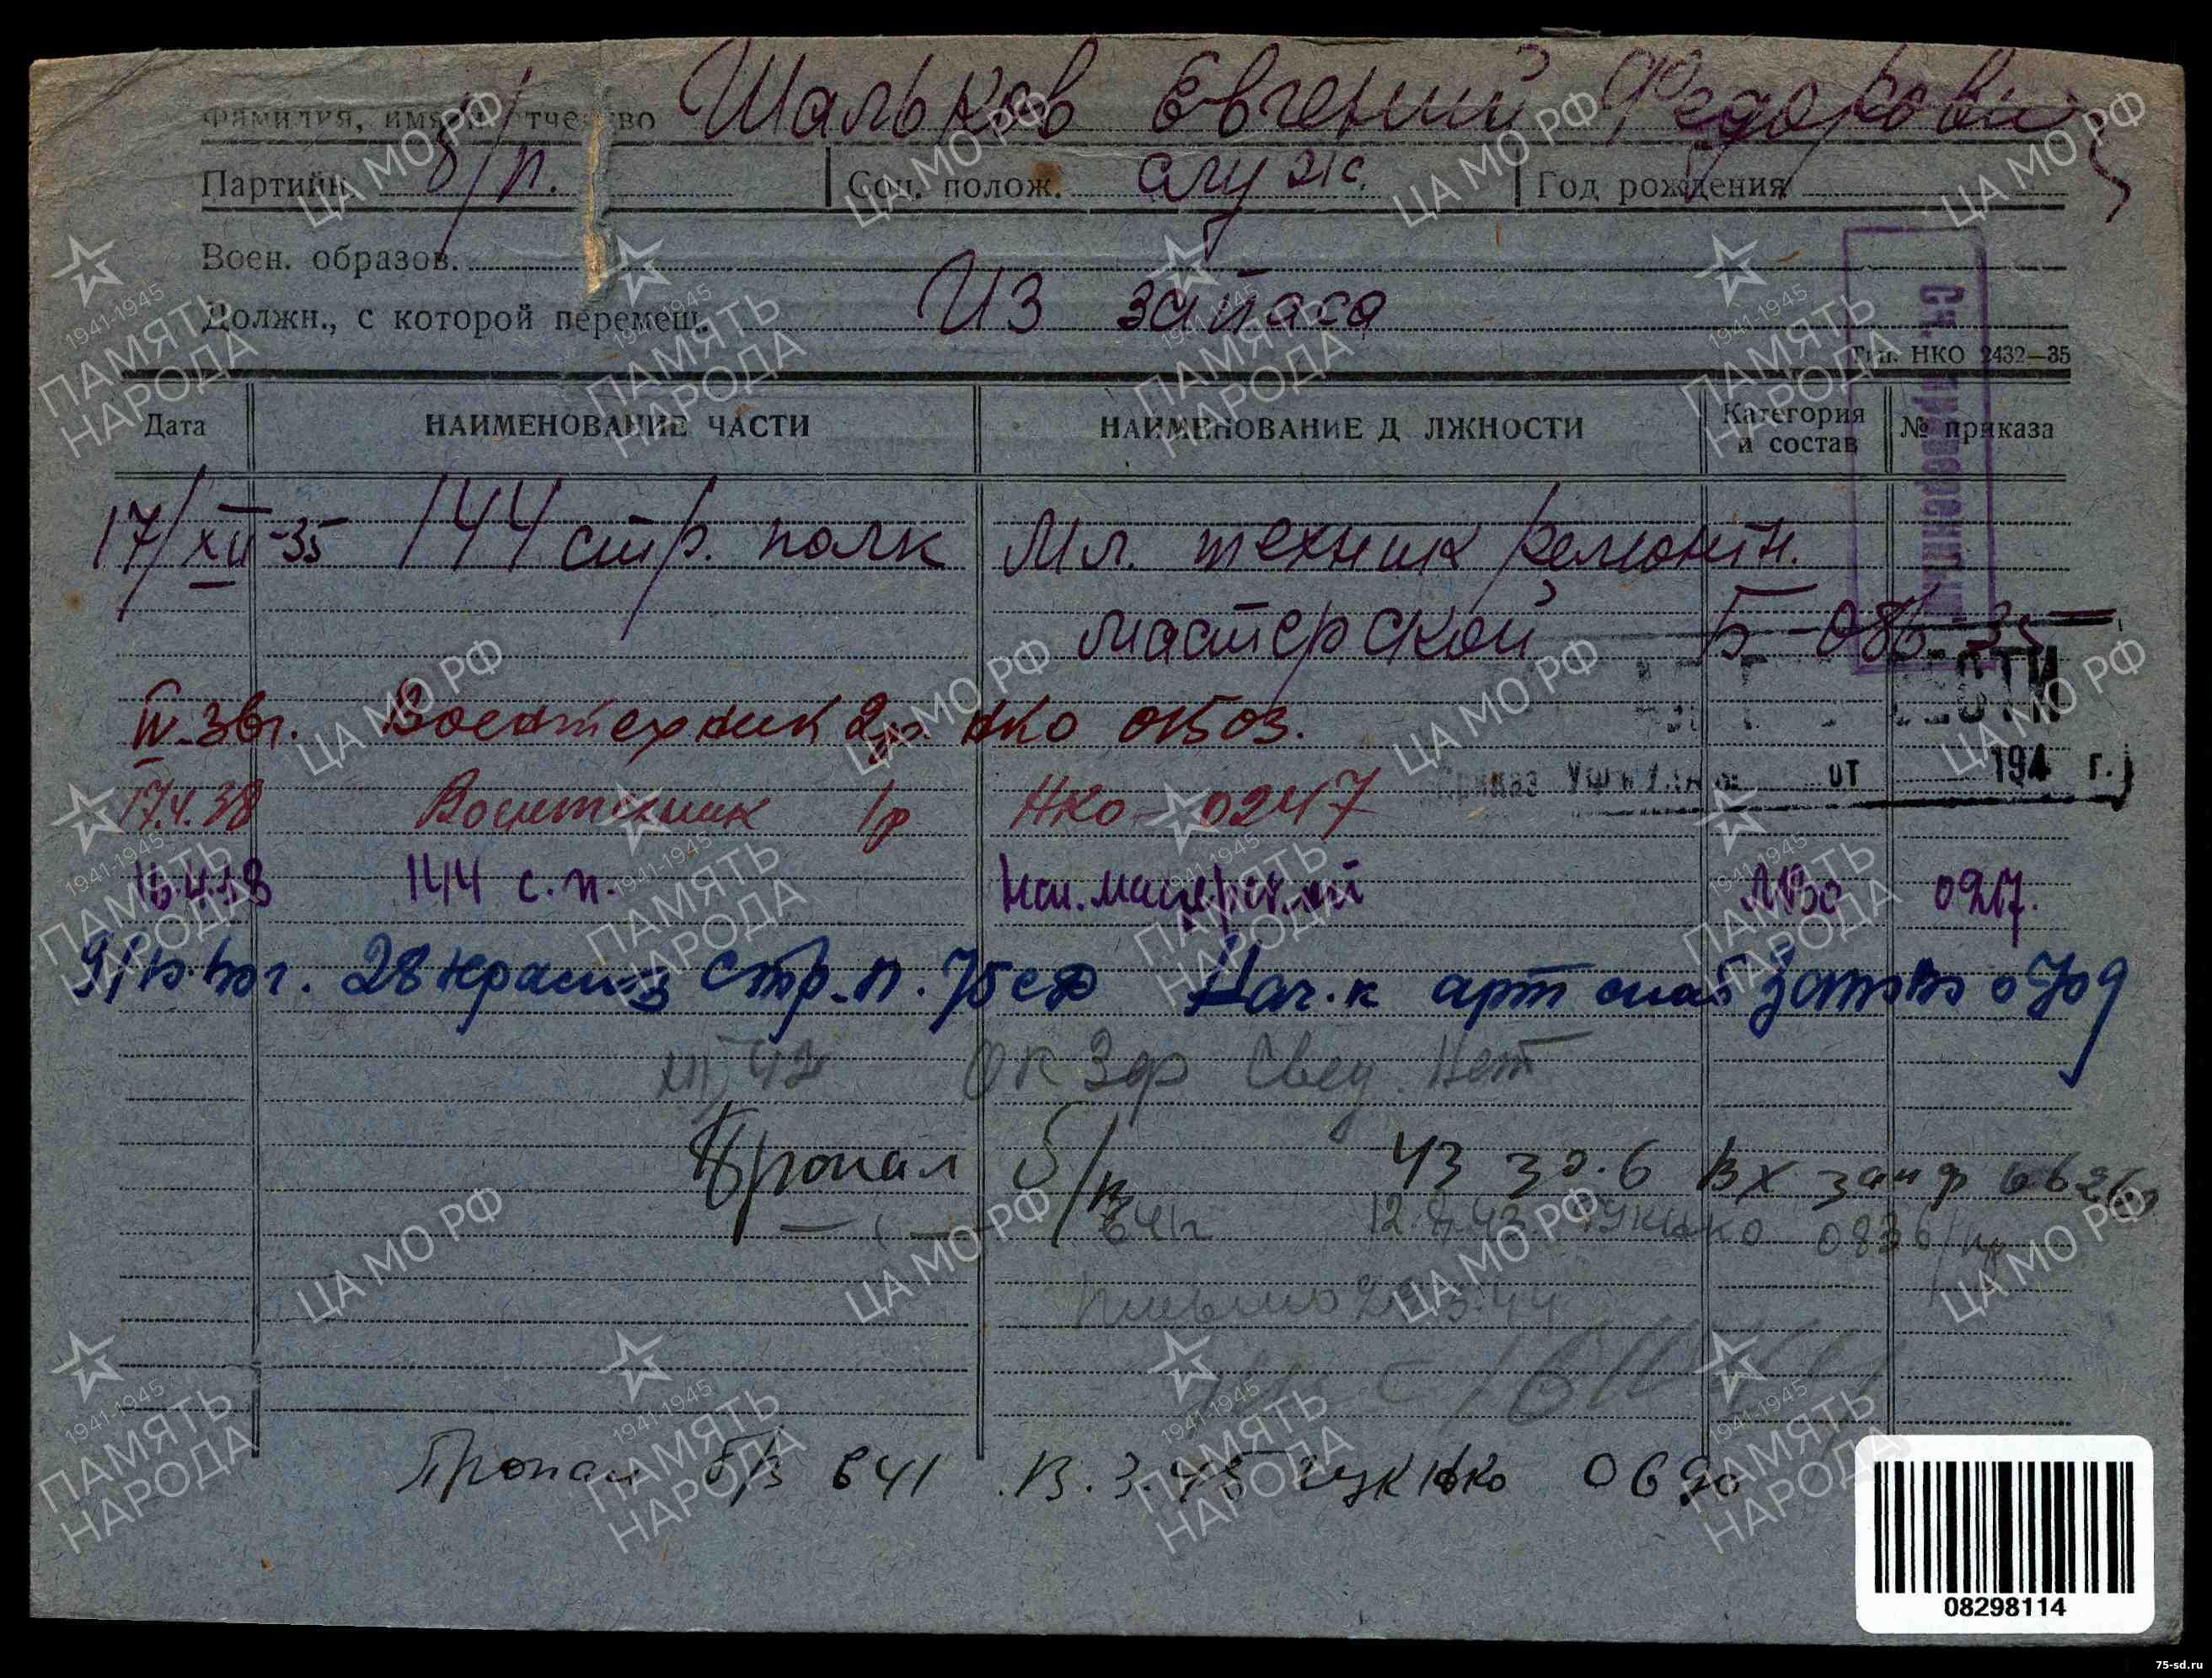 Фамилия, имя и отчество Шальков Евгений Федорович
Партийн. б/п. Соц. полож. служ. Год рождения
Воен. образов.
Должн., с которой перемещ. Из запаса
Тип. НКО 2432—35
Дата НАИМЕНОВАНИЕ ЧАСТИ НАИМЕНОВАНИЕ Д ЛЖНОСТИ Категория и состав № приказа
17/XII-35 144 стр. полк Мл. техник ремонтн.
мастерской Б-086 35
IV.36г. Воентехник 2р НКО 01503.
17.4.38 Воентехник 1р НКО-0247
144 с.п. Нач. мастерской МВО 0217.
28 Красн-з стр.п. 75 сд Нач.к арт снаб ЗапОВО 0709
XII 42 ОК Зф Свед. Нет
Пропал б/в 43 30.6 Вх зап ф
641г 12.4.43. ГУКНКО 0836/
письмо 3.44
Пропал б/в 641 3.45 ГУКНКО 0690
Приказ от 194 г.
08298114
ЦА МО РФ
1941-1945
ПАМЯТЬ
НАРОДА
75-sd.ru